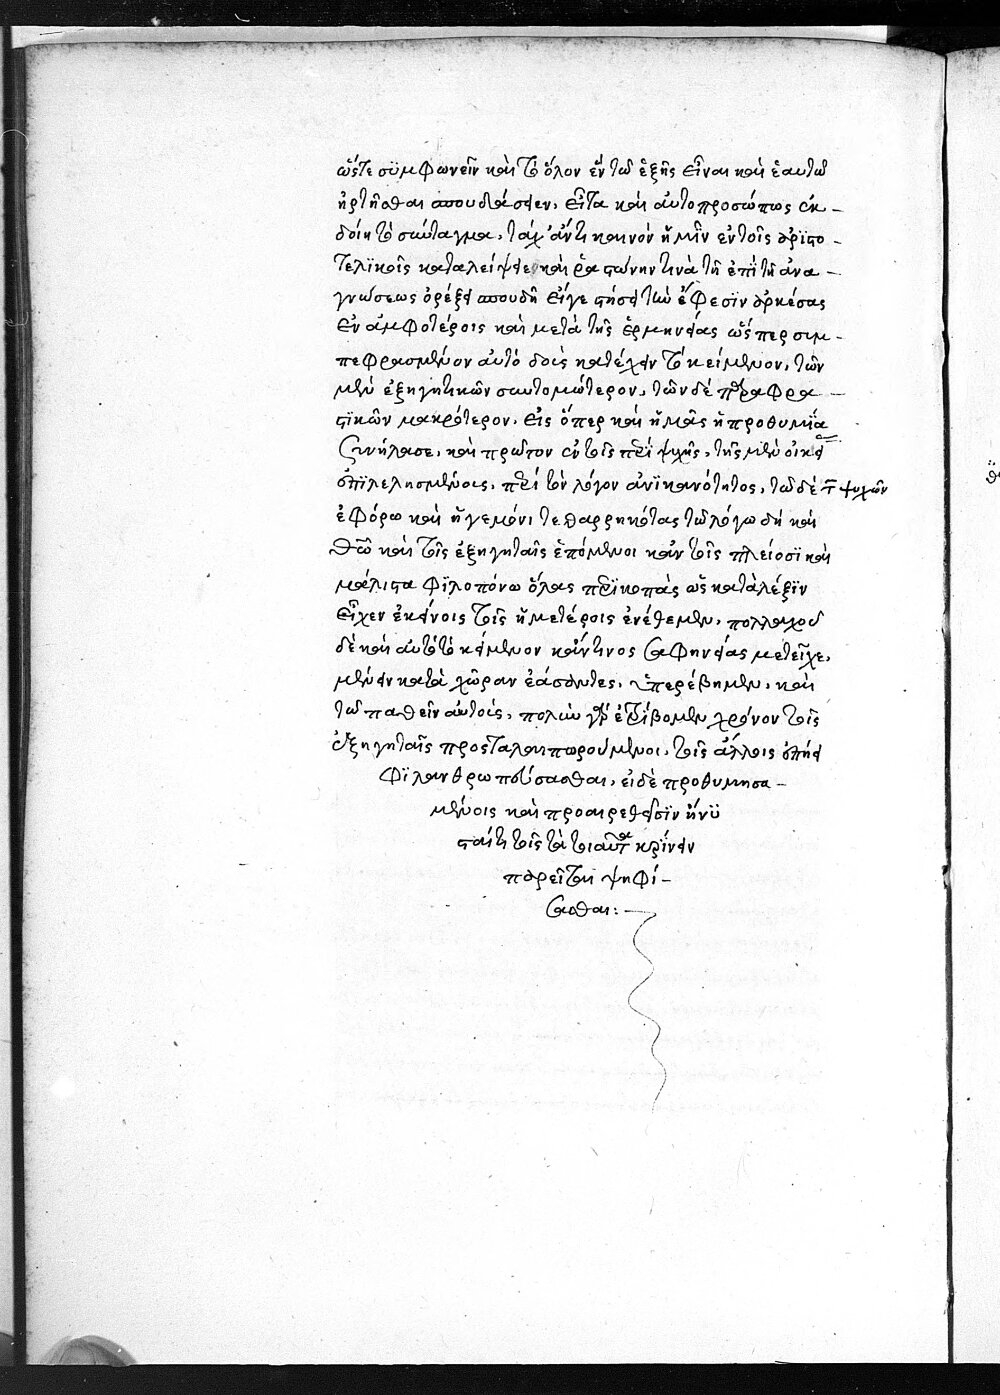 ὥστε συμφωνεῖν καὶ τὸ ὅλον ἓν τῶ ἑξῆς εἶναι καὶ ἑαυτῶ
ἠρτῆσθαι σπουδάσειεν, εἶτα καὶ αὐτοπροσώπως ἐκ-
δοίη τὸ σύνταγμα, τάχ' ἄν τι καινὸν ἡμῖν ἐν τοῖς ἀριστο-
τελϊκοῖς καταλείψει καὶ ῥαστώνην τινὰ τῆ ἐπὶ τῆ ἀνα-
γνώσεως ὀρέξει σπουδῆ εἴγε στήσει τὴν ἔφεσϊν ἀρκέσας
ἐν ἀμφοτέροις καὶ μετὰ τῆς ἑρμηνείας ὥσπερ συμ-
πεφρασμένον αὐτὸ δοὺς κατέχειν τὸ κείμενον, τῶν
μὲν ἐξηγητικῶν συντομώτερον, τῶν δὲ παραφρα-
στικῶν μακρότερον. εἰς ὅπερ καὶ ἡμᾶς ἡ προθυμία
συνήλασε, καὶ πρῶτον ἐν τοῖς περὶ ψυχῆς, τῆς μὲν οἰκεί
ἐπϊλελησμένοις, περὶ τὸν λόγον ἀνϊκανότητος, τῶ δὲ τῶν ψυχῶν
ἐφόρω καὶ ἡγεμόνι τεθαρρηκότας τῶ λόγω δὴ καὶ
θεῶ καὶ τοῖς ἐξηγηταῖς ἑπόμενοι κἀν τοῖς πλείοσϊ καὶ
μάλιστα φϊλοπόνω ὅλας περϊκοπὰς ὡς κατὰ λέξϊν
εἶχεν ἐκείνοις τοῖς ἡμετέροις ἐνέθεμεν, πολλαχοῦ
δὲ καὶ αὐτὸ τὸ κείμενον κἄν τινος σαφηνείας μετεῖχε,
μένειν κατὰ χῶραν ἐάσαντες, ὑπερέβημεν, καὶ
τῶ παθεῖν αὐτοῖς, πολὺν γὰρ ἐτρίβομεν χρόνον τοῖς
ἐξηγηταῖς προσταλαιπωρούμενοι, τοῖς ἄλλοις ἐπήει
φϊλανθρωπεύσασθαι, εἰ δὲ προθυμησα-
μένοις καὶ προαιρεθεῖσϊν ἠνϋ
σταί τι τοῖς τὰ τοιαῦτα κρίνειν
παρείσθω ψηφί-
σασθαι:-